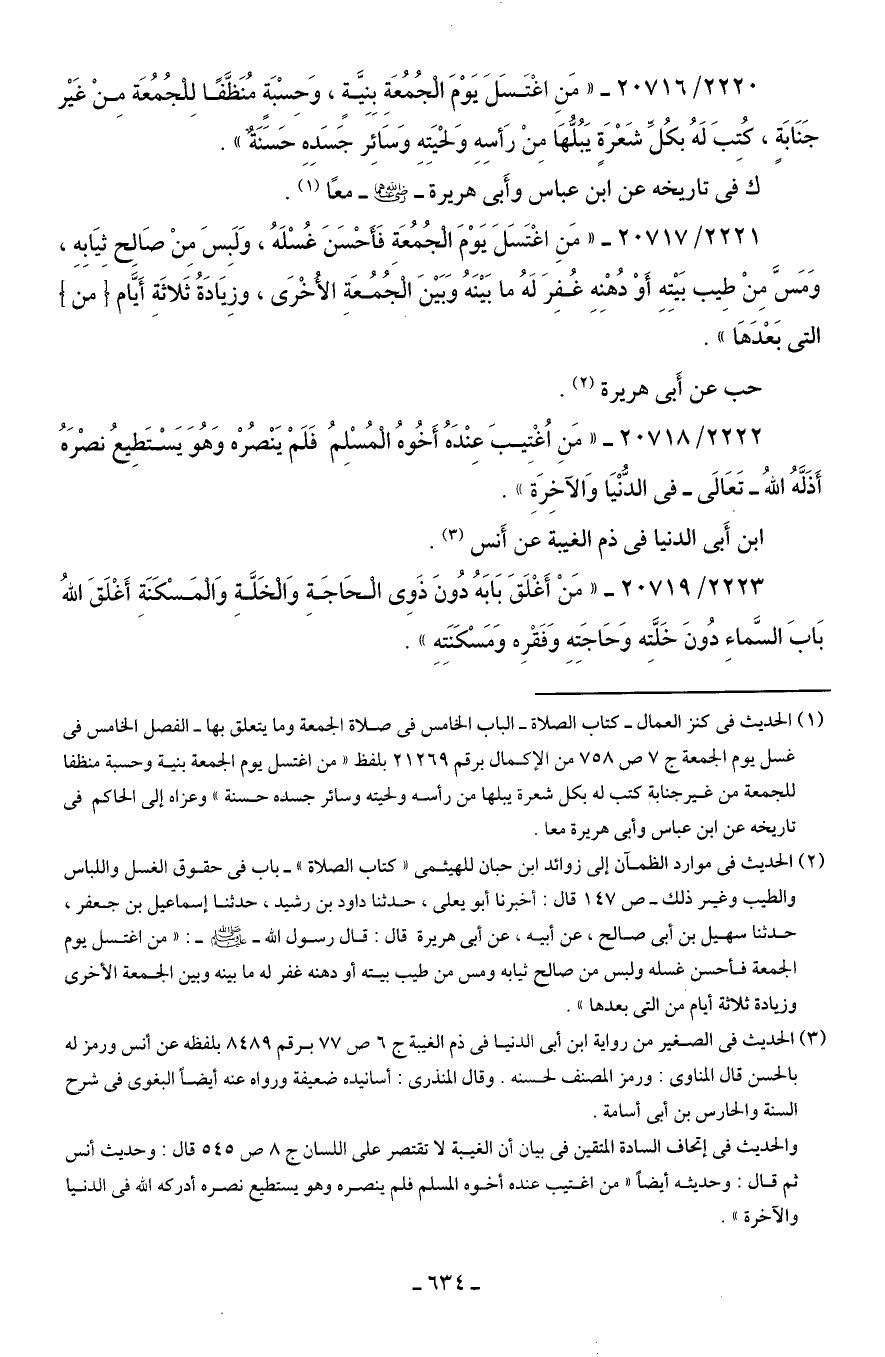 ٢٢٢٠/ ٢٠٧١٦ ـ « مَنِ اغْتَسَلَ يَوْمَ الْجُمُعَةِ بِنِيَّةٍ ، وَحِسْبَةٍ مُنَظَّفًا لِلْجُمُعَةِ مِنْ غَيْرِ
جَنَابَةٍ ، كُتِبَ لَهُ بِكُلِّ شَعْرَةٍ يَبُلُّهَا مِنْ رَأسِهِ وَلِحْيَتِهِ وَسَائِرِ جَسَدِهِ حَسَنَةٌ » .
ك فى تاريخه عن ابن عباس وأبى هريرة ـ رضي الله عنهما ـ معًا (١) .
٢٢٢١/ ٢٠٧١٧ ـ « مَنِ اغْتَسَلَ يَوْمَ الْجُمُعَةِ فَأَحْسَنَ غُسْلَهُ ، وَلَبِسَ مِنْ صَالِحِ ثِيَابِهِ ،
وَمَسَّ مِنْ طِيبِ بَيْتِهِ أَوْ دُهْنِهِ غُفِرَ لَهُ ما بَيْنَهُ وَبَيْنَ الْجُمُعَةِ الأُخْرَى ، وزِيَادَةُ ثَلاثَةِ أَيَّامٍ { من }
التى بَعْدَهَا » .
حب عن أَبى هريرة (٢) .
٢٢٢٢/ ٢٠٧١٨ ـ « مَنِ اُغْتِيبَ عِنْدَهُ أَخُوهُ الْمُسْلِمُ فَلَمْ يَنْصُرْه وَهُوَ يَسْتَطِيعُ نصْرَهُ
أَذَلَّهُ اللهُ ـ تَعَالَى ـ فى الدُّنْيَا وَالآخِرَةِ » .
ابن أَبى الدنيا فى ذم الغيبة عن أَنس (٣) .
٢٢٢٣/ ٢٠٧١٩ ـ « مَنْ أَغْلَقَ بَابَهُ دُونَ ذَوِى الْحَاجَةِ وَالْخَلَّةِ وَالْمَسْكَنَةِ أَغْلَقَ اللهُ
بَابَ السَّماءِ دُونَ خَلَّتِهِ وَحَاجَتِهِ وَفَقْرِهِ وَمَسْكَنَتِهِ » .
(١) الحديث فى كنز العمال ـ كتاب الصلاة ـ الباب الخامس فى صلاة الجمعة وما يتعلق بها ـ الفصل الخامس فى
غسل يوم الجمعة ج ٧ ص ٧٥٨ من الإكمال برقم ٢١٢٦٩ بلفظ « من اغتسل يوم الجمعة بنية وحسبة منظفا
للجمعة من غيرجنابة كتب له بكل شعرة يبلها من رأسه ولحيته وسائر جسده حسنة » وعزاه إلى الحاكم فى
تاريخه عن ابن عباس وأبى هريرة معا .
(٢) الحديث فى موارد الظمآن إلى زوائد ابن حبان للهيثمى « كتاب الصلاة » ـ باب فى حقوق الغسل واللباس
والطيب وغير ذلك ـ ص ١٤٧ قال : أخبرنا أبو يعلى ، حدثنا داود بن رشيد ، حدثنا إسماعيل بن جعفر ،
حدثنا سهيل بن أبى صالح ، عن أبيه ، عن أبى هريرة قال : قال رسول الله ـ ﷺ ـ : « من اغتسل يوم
الجمعة فأحسن غسله ولبس من صالح ثيابه ومس من طيب بيته أو دهنه غفر له ما بينه وبين الجمعة الأخرى
وزيادة ثلاثة أيام من التى بعدها » .
(٣) الحديث فى الصغير من رواية ابن أبى الدنيا فى ذم الغيبة ج ٦ ص ٧٧ برقم ٨٤٨٩ بلفظه عن أنس ورمز له
بالحسن قال المناوى : ورمز المصنف لحسنه . وقال المنذرى : أسانيده ضعيفة ورواه عنه أيضاً البغوى فى شرح
السنة والحارس بن أبى أسامة .
والحديث فى إتحاف السادة المتقين فى بيان أن الغيبة لا تقتصر على اللسان ج ٨ ص ٥٤٥ قال : وحديث أنس
ثم قال : وحديثه أيضاً « من اغتيب عنده أخوه المسلم فلم ينصره وهو يستطيع نصره أدركه الله فى الدنيا
والآخرة » .
ـ ٦٣٤ ـ